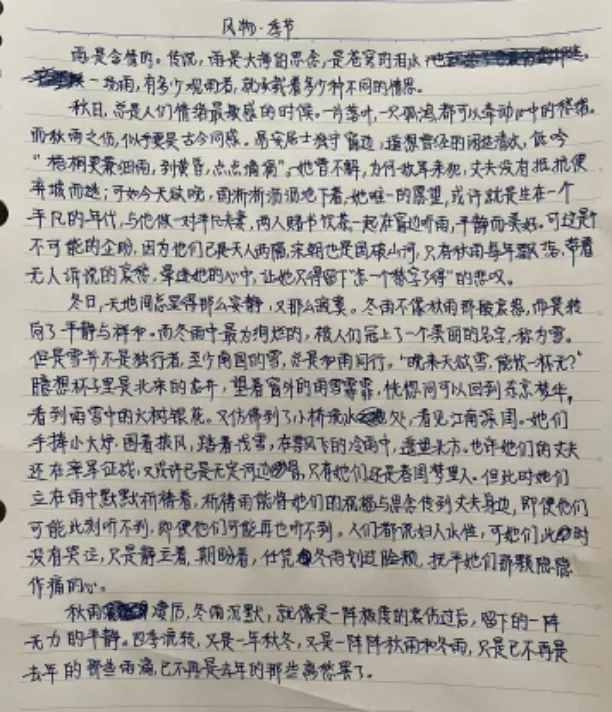 风物·季节
雨是含情的。传说,雨是大禅的思念,是苍穹的泪水
一场雨,有多少观雨者,就承载着多少种不同的情思。
秋日,总是人们情绪最敏感的时候。一片落叶,一只孤鸿都可以牵动心中的愁绪。
而秋雨之伤,似乎更是古今同感。易安居士独守窗边,遥想曾经的闲适清欢,低吟
“梧桐更兼细雨,到黄昏,点点滴滴”,她曾不解,为何敌军来犯,丈夫没有抵抗便
弃城而逃;可如今天欲晚,雨淅淅沥沥地下着,她唯一的愿望,或许就是生在一个
平凡的年代,与他做一对平凡夫妻,两人赌书饮茶一起在窗边听雨,平静而美好。可这是个
不可能的企盼,因为他们已是天人两隔,宋朝也是国破山河,只有秋雨每年飘落,带着
无人诉说的哀愁,晕进她的心中,让她只得留下“怎一个愁字了得”的悲叹。
冬日,天地间总显得那么安静,又那么寂寞。冬雨不像秋雨那般哀怨,而是转
向了平静与祥和。而冬雨中最为绚烂的,被人们冠上了一个美丽的名字,称为雪。
但是雪并不是独行者,至少南国的雪,总是和雨同行。“晚来天欲雪,能饮一杯无?”
臆想杯子里是北来的 ,望着窗外的雨雪霏霏,恍惚间可以回到东京梦华,
看到雨雪中的火树银花。又仿佛到了小桥流水 处,看见江南深闺。她们
手捧小火炉,围着披风,踏着 雪,在飘飞的冷雨中,遥望北方。也许她们的丈夫
还在率军征战,又或许已是无定河边骨,只有她们还是春闺梦里人。但此时她们
立在雨中默默祈祷着,祈祷雨能将她们的祝福与思念传到丈夫身边,即便他们
可能此刻听不到,即便他们可能再也听不到。人们都说妇人水性,可她们此时
没有哭泣,只是静立着,期盼着,任凭冬雨划过脸颊,抚平她们那颗隐隐
作痛的心。
秋雨凌厉,冬雨沉默,就像是一阵极度的哀伤过后,留下的一阵
无力的平静。四季流转,又是一年秋冬,又是一阵阵秋雨和冬雨,只是已不再是
去年的那些雨滴,已不再是去年的那些离愁罢了。